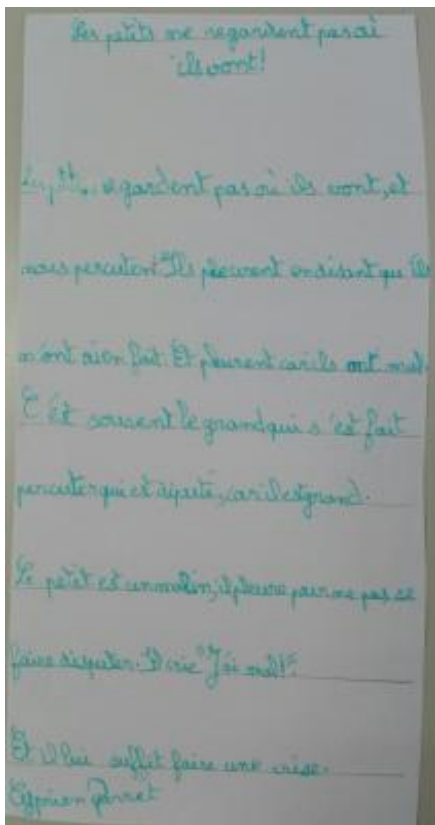 Les petits ne regardent pas où
ils vont!
Les petits regardent pas où ils vont, et
nous percutent. Ils pleurent en disant que ils
n'ont rien fait. Et pleurent car ils ont mal.
C'ét souvent le grand qui s'ét fait
percuter qui et disputé, car il est grand.
Le petit et un malin, il pleure pour ne pas se
faire disputer. Il crie "J'ai mal!".
Et il lui suffit faire une crise.
Cyprien